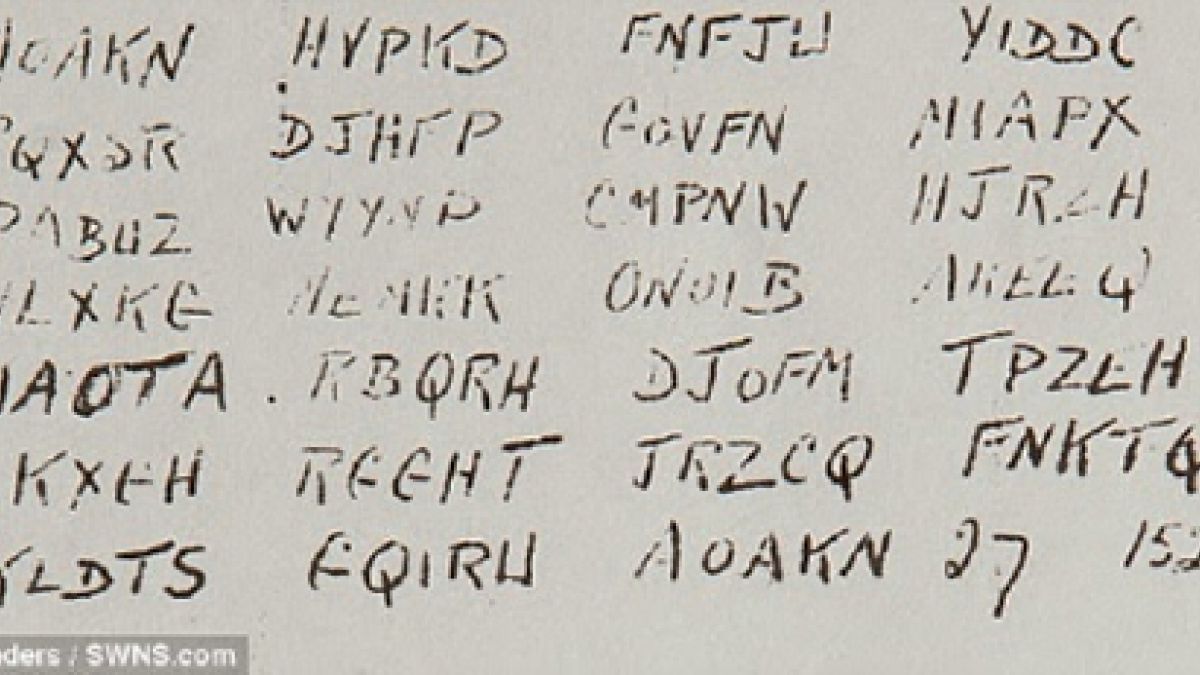 AOAKN HVPKD FNFJW YIDDC
RQXSR DJHFP GOVFN MIAPX
PABUZ WYYNP CMPNW HJRZH
NLXKG MEMKK ONOIB AKEEQ
UAOTA . RBQRH DJOFM TPZEH
KXGH RGGHT JRZCQ FNKTQ
KLDTS GQIRU AOAKN 27 152
nders / SWNS.com